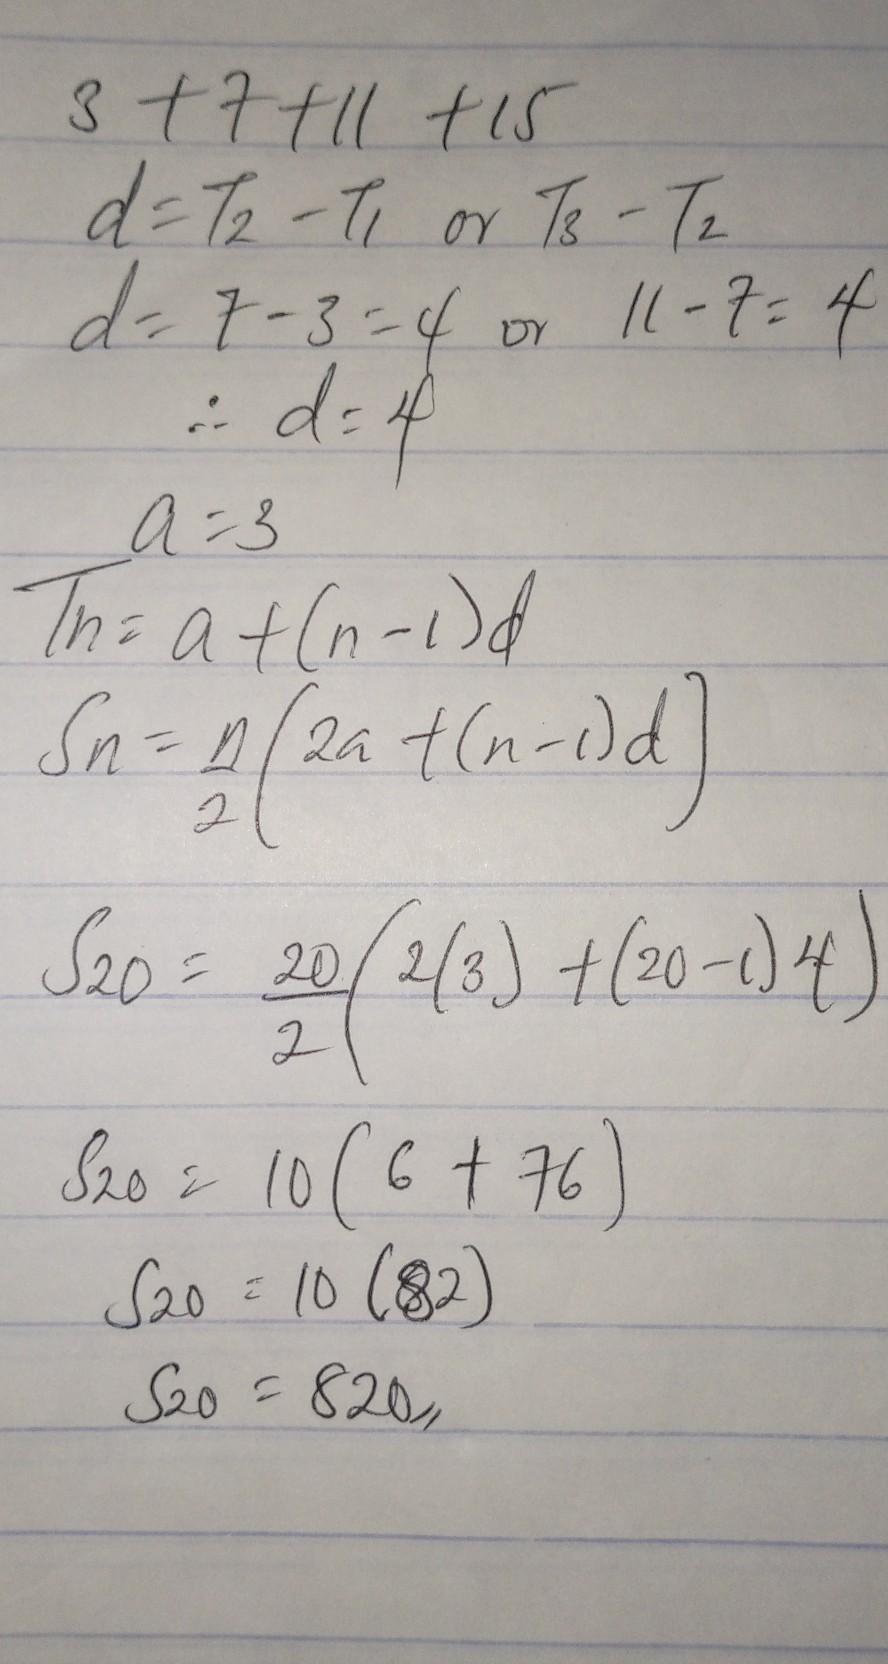 3 + 7 + 11 + 15
d = T2 - T1 or T3 - T2
d = 7 - 3 = 4 or 11 - 7 = 4
∴ d = 4
a = 3
Tn = a + (n - 1)d
Sn = n/2 (2a + (n - 1)d]
S20 = 20/2 (2(3) + (20 - 1)4)
S20 = 10(6 + 76)
S20 = 10(82)
S20 = 820,,